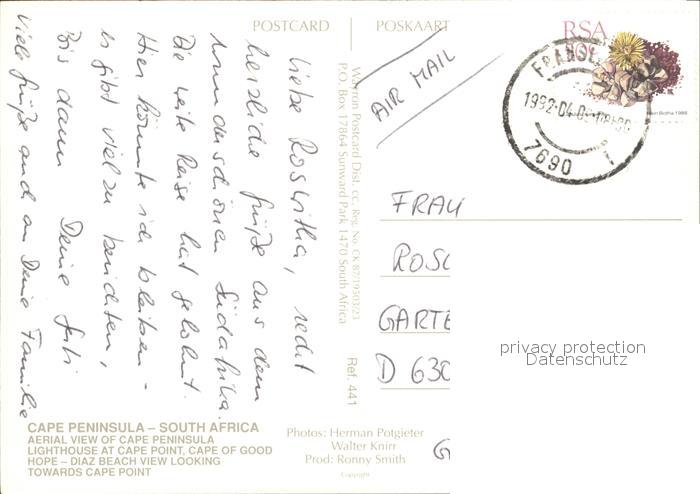 POSTCARD
POSKAART
RSA
AIR MAIL
FRANSC
1992-04-0
7690
Liebe Roswitha, recht
herzliche Grüße aus dem
wunderschönen Südafrika.
Die weite Reise hat gelohnt.
Hier könnte ich bleiben -
es gibt viel zu berichten,
Bis dann Deine
Viele Grüße auch an Deine Familie
Warron Postcard Dist. cc, Reg. No. CK 87/19503/23
P.O. Box 17864 Sunward Park 1470 South Africa
Ref. 441
FRAU
ROS
GARTE
D 630
G
privacy protection
Datenschutz
CAPE PENINSULA – SOUTH AFRICA
AERIAL VIEW OF CAPE PENINSULA
LIGHTHOUSE AT CAPE POINT, CAPE OF GOOD
HOPE – DIAZ BEACH VIEW LOOKING
TOWARDS CAPE POINT
Photos: Herman Potgieter
Walter Knirr
Prod: Ronny Smith
Copyright